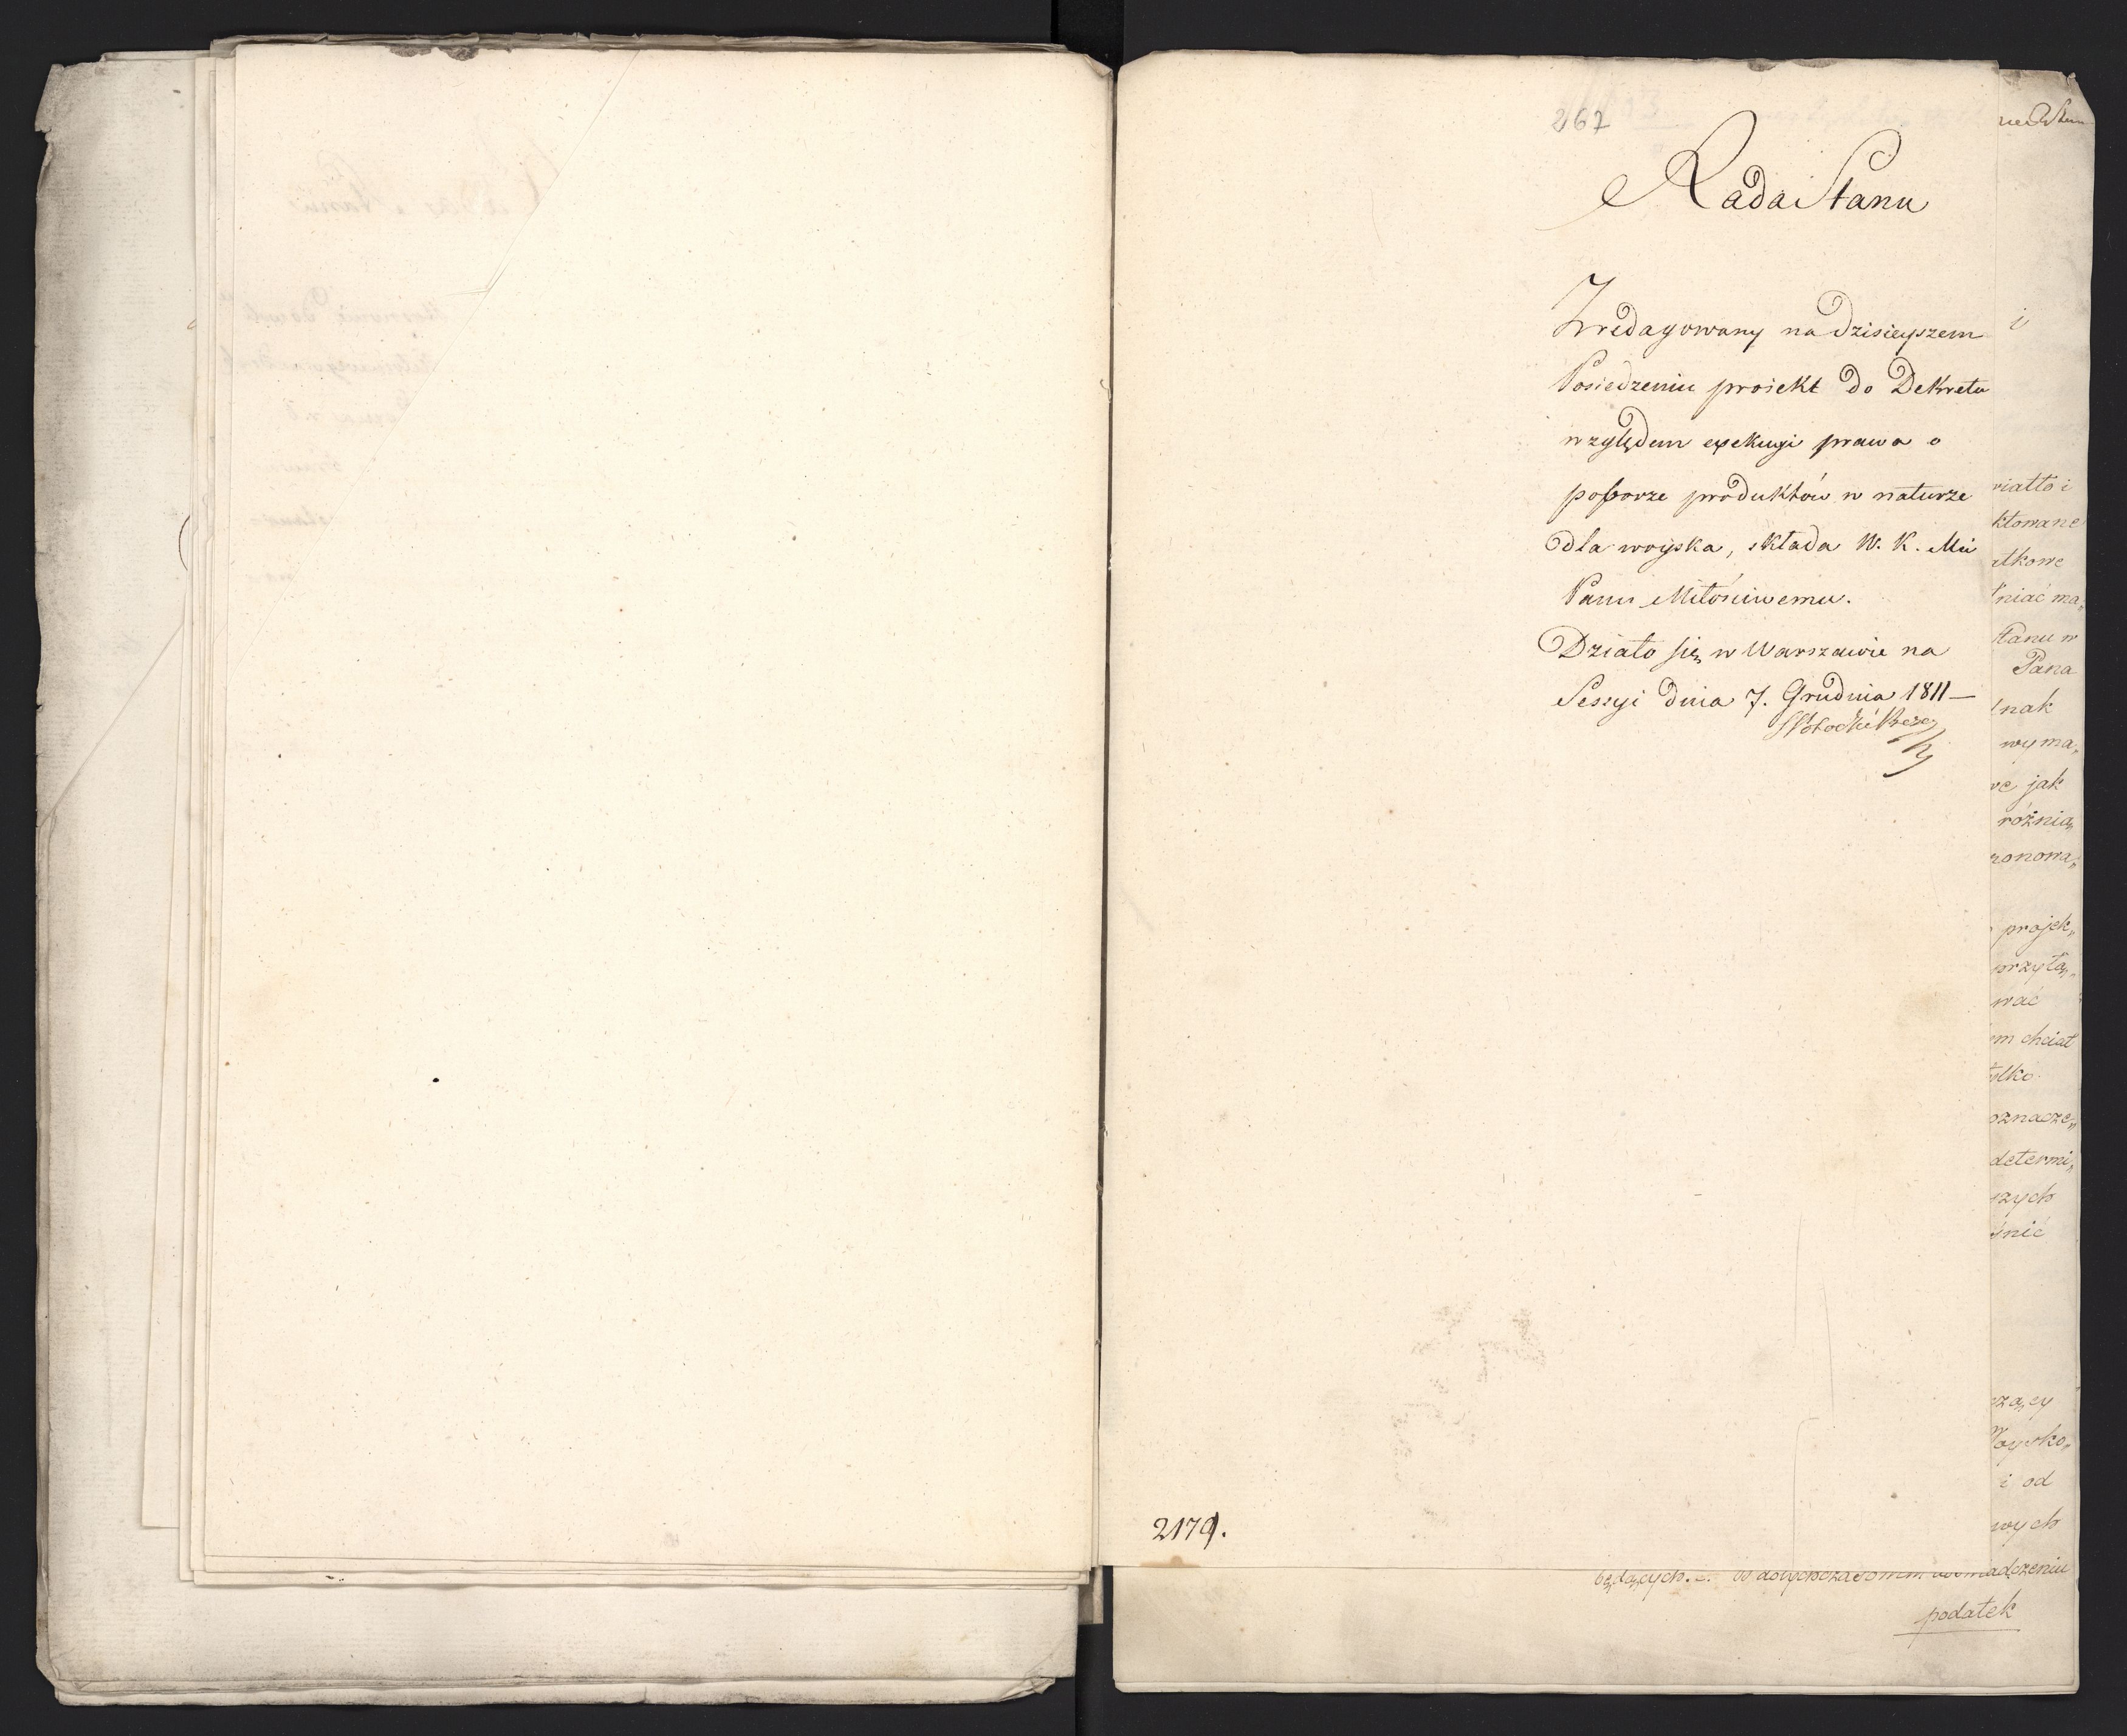 267
Rada Stanu
Zredagowany na dzisieyszem
Posiedzeniu proiekt do Dekretu
względem exekucyi prawa o
poborze produktów w naturze
dla woyska, składa W. K. Mci
Panu Miłościwemu.
Działo się w Warszawie na
Sessyi dnia 7. Grudnia 1811 —
2179.
i
ktowane
atkowe
niać ma„
Stanu w
Pana
nak
wyma„
jak
różnią„
ronowa„
projek„
przyłą„
wać
m chciał
oznacze„
determi„
szych
śnić
Woysko„
i od
wych
będących.
podatek